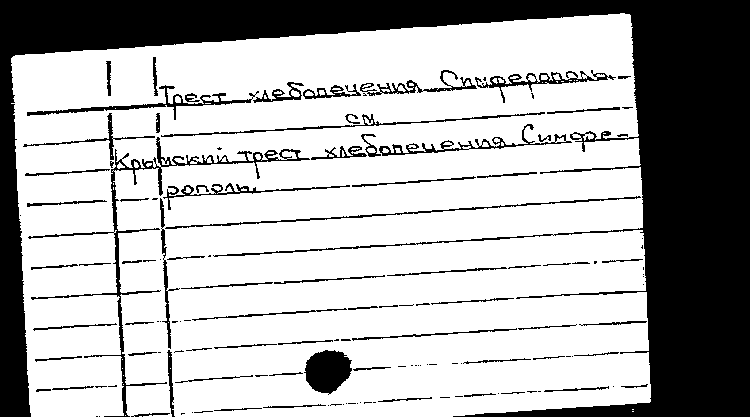 Трест хлебопечения Симферополь.
см.
Крымский трест хлебопечения. Симфе-
рополь.